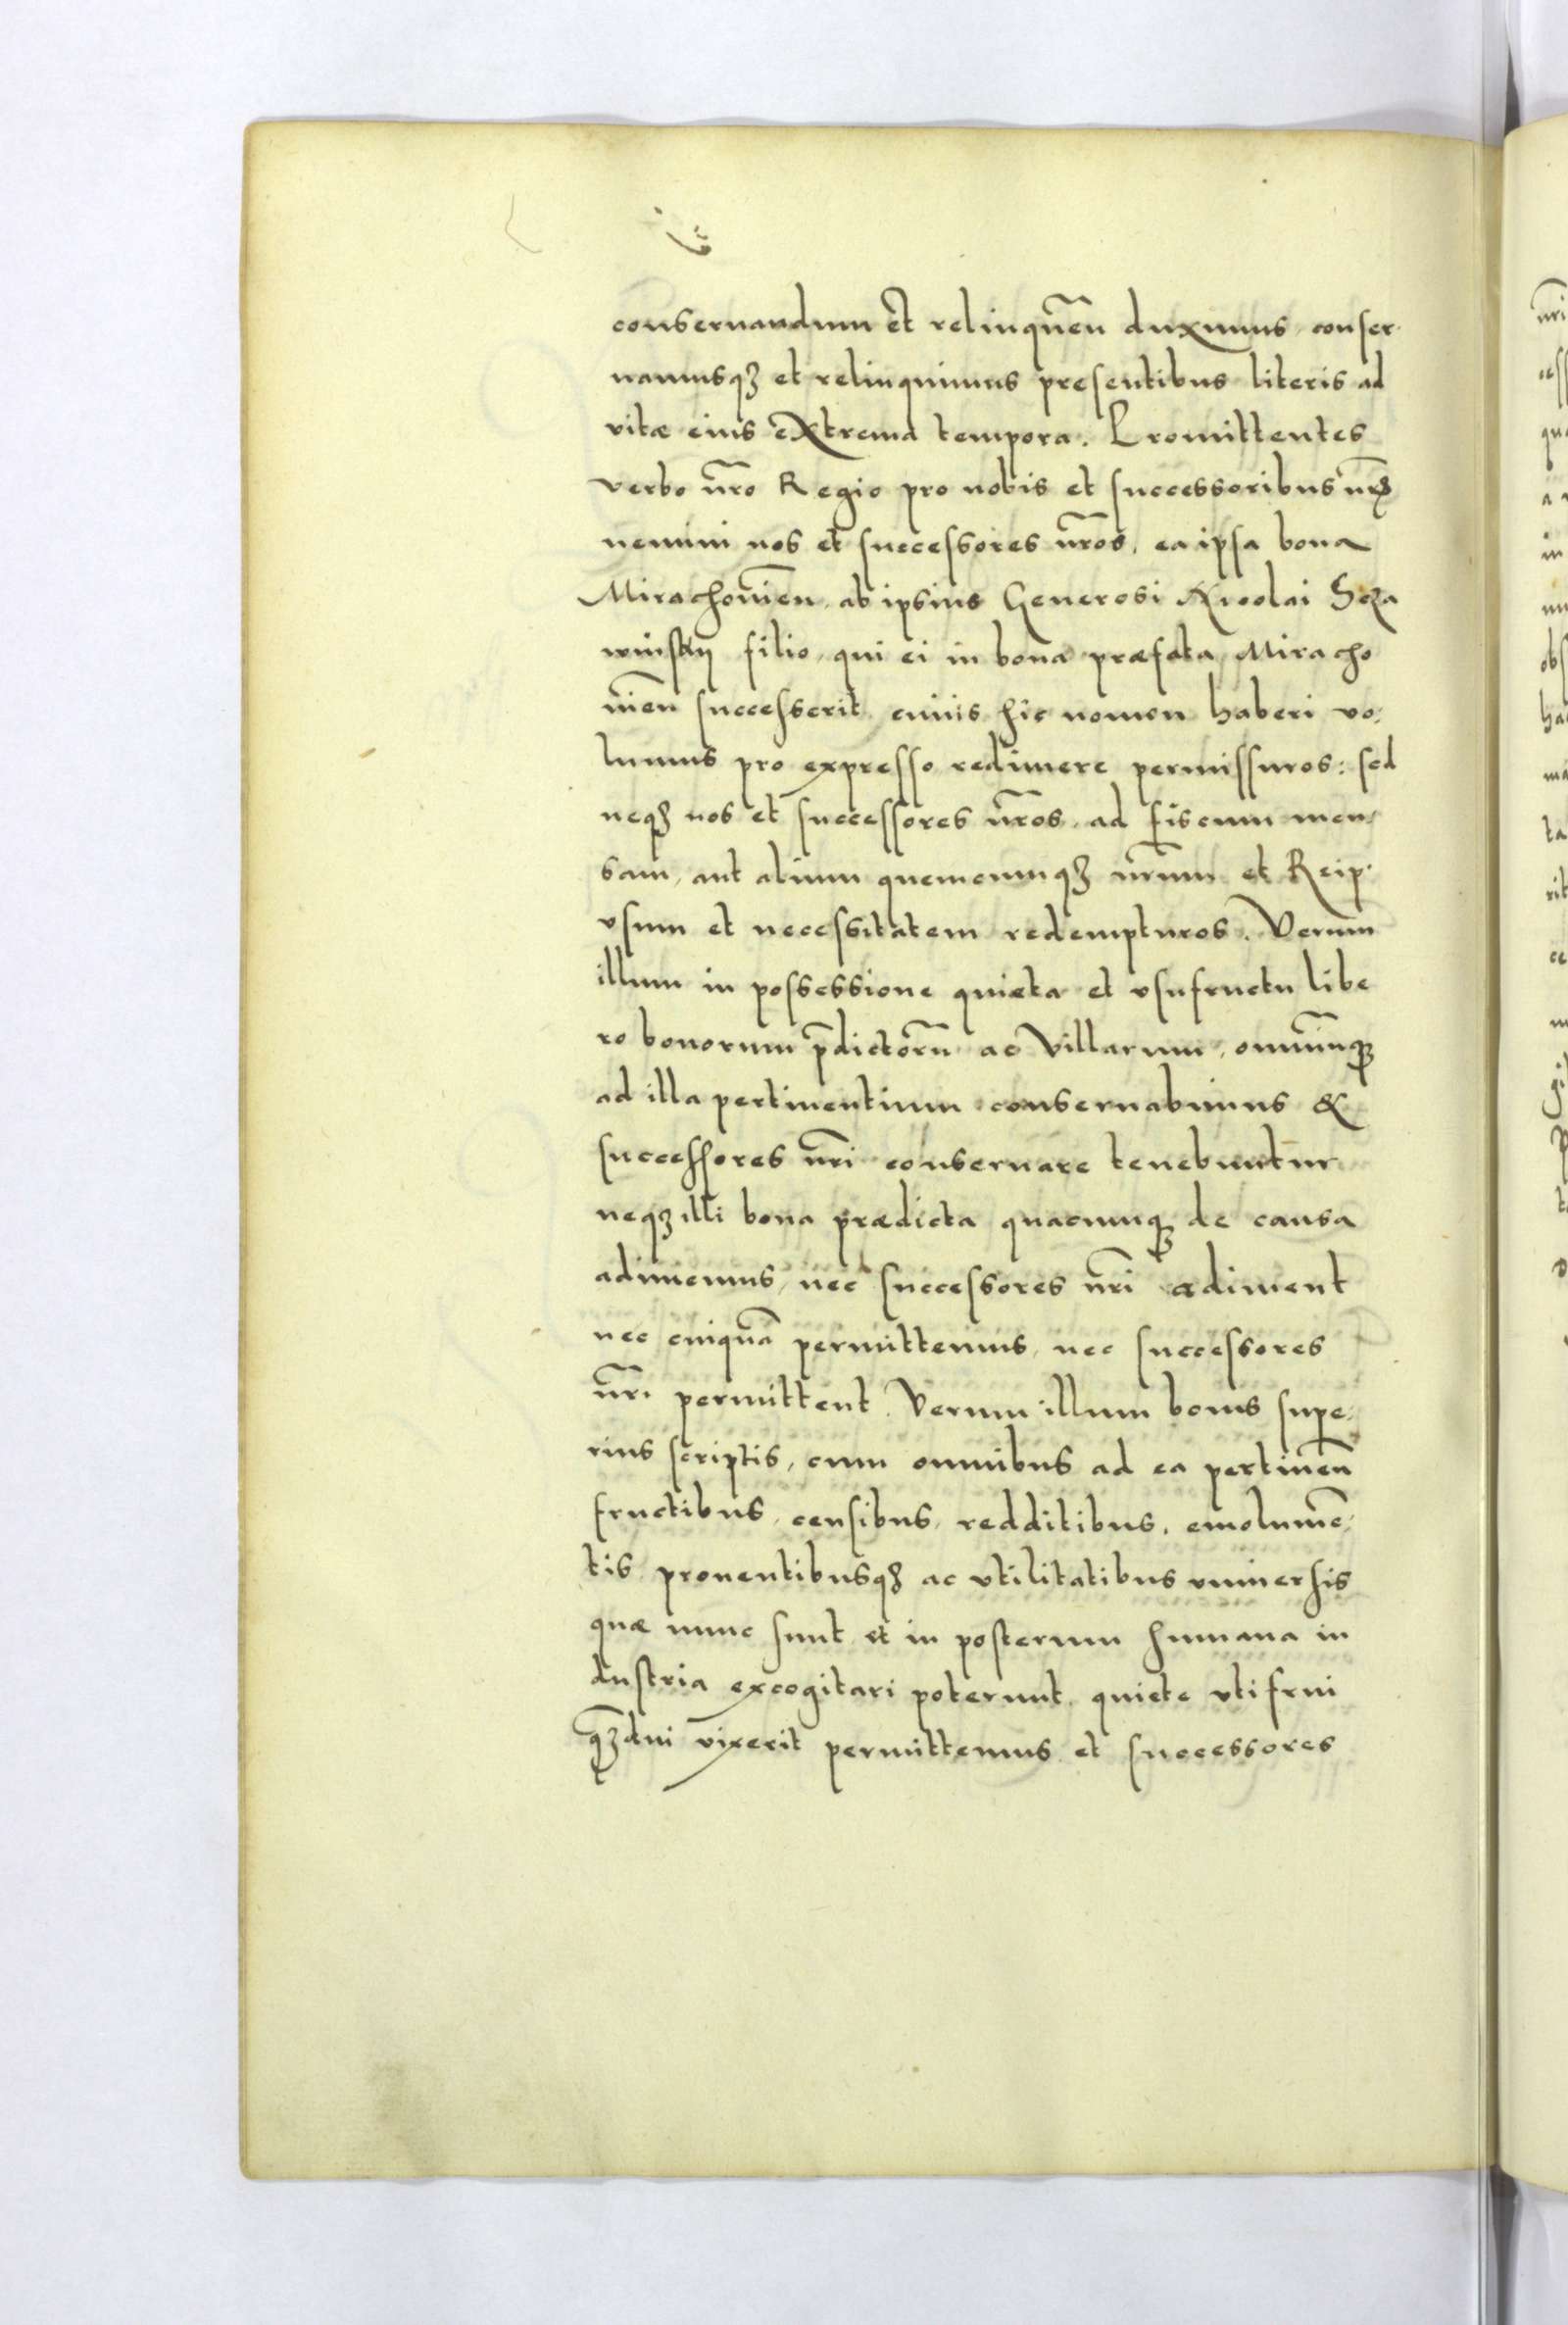 conseruandum et relinquẽn duximus, conser
uamusqȝ et relinquimus presentibus literis ad
vitæ eius extrema tempora. Promittentes
verbo nr̃o Regio pro nobis et successoribus nr̃is
nemini nos et successores nr̃os, ea ipsa bona
Mirachouien̄, ab ipsius Generosi Nicolai Soza
winskij filio, qui ei in bona præfata Miracho
uien̄ successerit cuius hic nomen haberi vo,
lumus pro expresso redimere permissuros: sed
neqȝ nos et successores nr̃os, ad fiscum men,
sam, aut alium quemcumqȝ nr̃um et Reip.
vsum et necessitatem redempturos. Verum
illum in possessione quieta et vsufructu libe
ro bonorum p̄dictorū ac villarum, omniūqȝ
ad illa pertinentium conseruabimus &
successores nr̃i conseruare tenebuntur
neqȝ illi bona prædicta quacunqȝ de causa
adimemus, nec successores nr̃i adiment
nec cuiquā permittemus, nec successores
nr̃i permittent. Verum illum bonis supe,
rius scriptis, cum omnibus ad ea pertinen̄
fructibus, censibus, redditibus, emolumē,
tis prouentibusqȝ ac vtilitatibus vniuersis
quæ nunc sunt et in posterum humana in
dustria excogitari poterunt, quiete vti frui
qȝ̄diu vixerit permittemus et successores